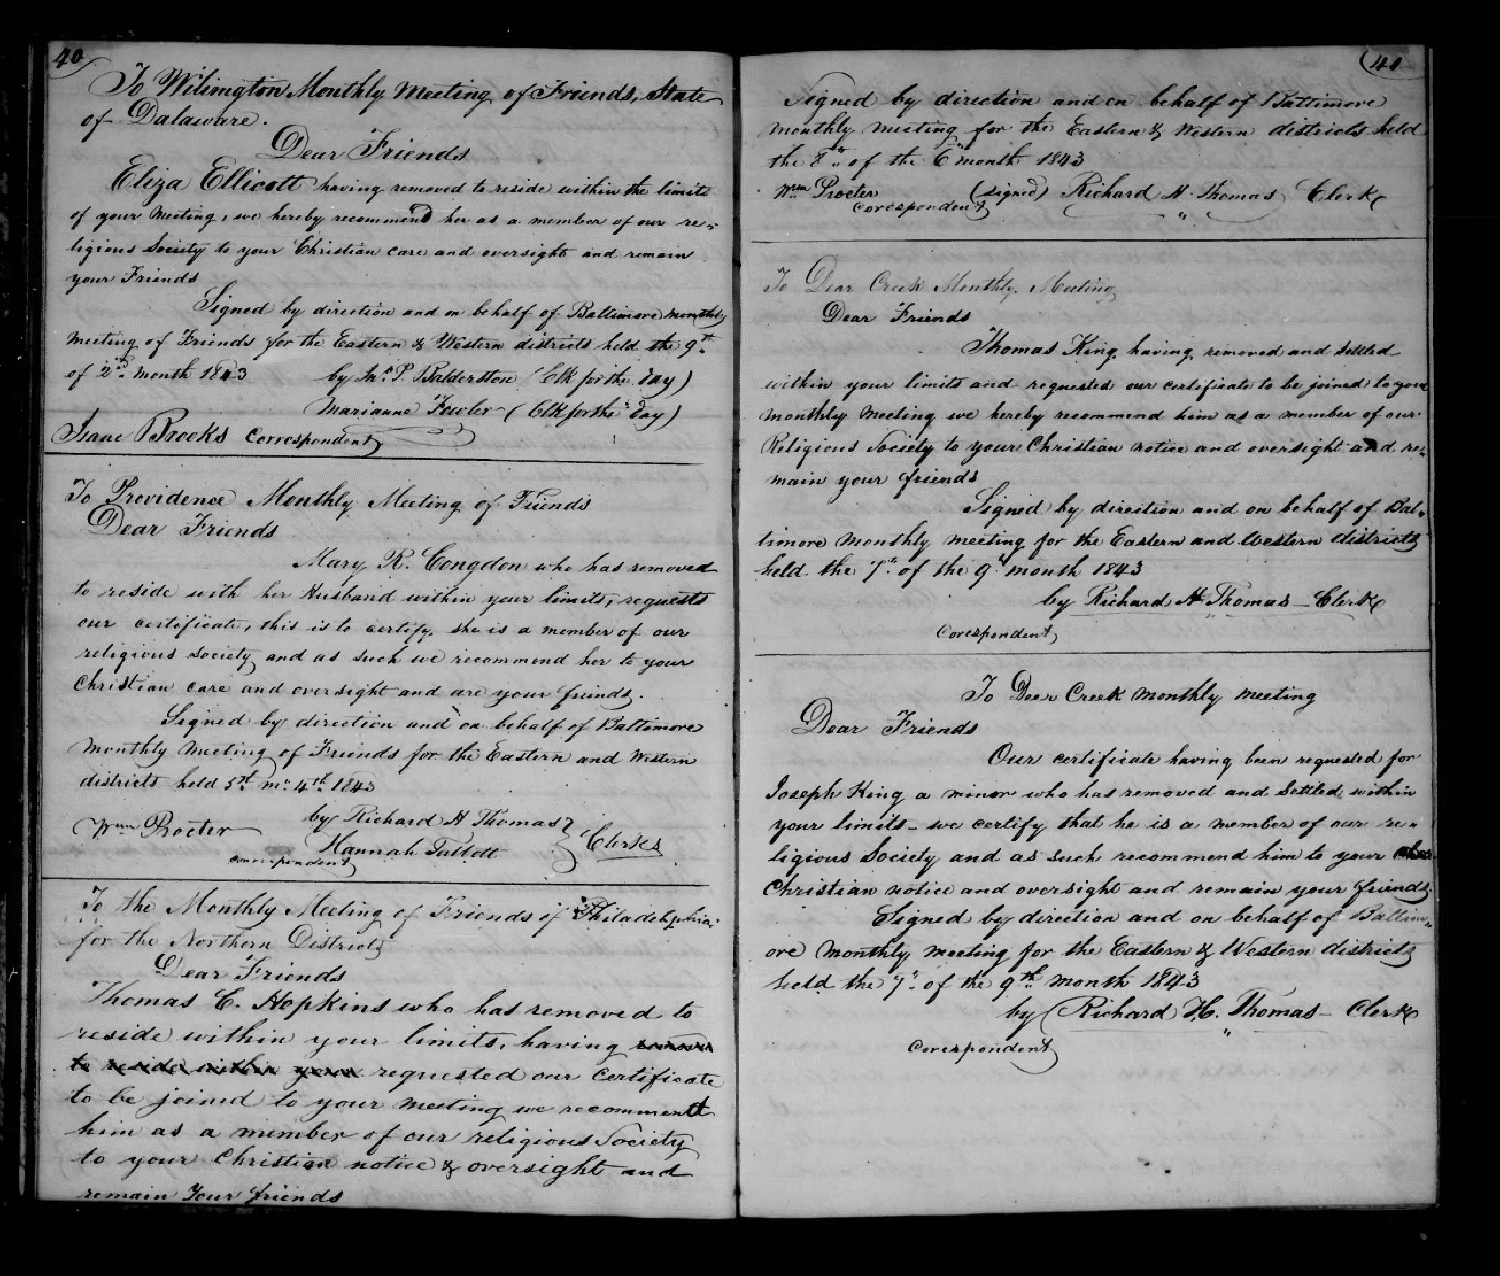 40
To Wilmington Monthly Meeting of Friends, State
of Dalaware.
Dear Friends
Eliza Ellicott having removed to reside within the limits
of your Meeting, we hereby recommend her as a member of our re-
ligious Society to your Christian care and oversight and remain
your Friends
Signed by direction and on behalf of Baltimore monthly
Meeting of Friends for the Eastern & Western districts held the 9th
of 2nd month 1843 by Jno. P. Balderston (Clk for the day)
Marianne Fowler (Clk for the day)
Isaac Brooks Correspondent
To Providence Monthly Meeting of Friends
Dear Friends
Mary R. Congdon who has removed
to reside with her Husband within your limits, requests
our certificate, this is to certify, she is a member of our
religious society and as such we recommend her to your
Christian care and oversight and are your friends.
Signed by direction and on behalf of Baltimore
Monthly Meeting of Friends for the Eastern and Western
districts held 5th mo. 4th 1843
by Richard H Thomas
Wm Procter Hannah Talbott Clerks
correspondent
To the Monthly Meeting of Friends of Philadelphia
for the Northern District
Dear Friends
Thomas C. Hopkins who has removed to
reside within your limits, having remove
to reside within your requested our certificate
to be joined to your meeting we recommend
him as a member of our religious Society
to your Christian notice & oversight and
remain Your friends
41
Signed by direction and on behalf of Baltimore
monthly meeting for the Eastern & Western districts held
the 8th of the 6th month 1843
Wm Procter (signed) Richard H. Thomas Clerk
correspondent
To Dear Creek Monthly Meeting
Dear Friends
Thomas King having removed and settled
within your limits and requested our certificate to be joined to your
monthly meeting we hereby recommend him as a member of our
Religious Society to your Christian notice and oversight and re-
main your friends
Signed by direction and on behalf of Bal-
timore monthly meeting for the Eastern and Western districts
held the 7th of the 9th month 1843
by Richard H Thomas - Clerk
Corespondent
To Deer Creek monthly meeting
Dear Friends
Our certificate having been requested for
Joseph King a minor who has removed and settled within
your limits - we certify that he is a member of our re-
ligious Society and as such recommend him to your
Christian notice and oversight and remain your friends.
Signed by direction and on behalf of Baltim-
ore monthly meeting for the Eastern & Western districts
held the 7th of the 9th month 1843
by Richard H. Thomas - Clerk
Corespondent